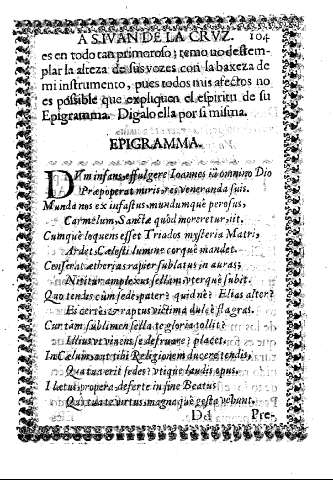 A S. IVAN DE LA CRVZ. 104
es en todo tan primoroso; temo no destem-
plar la alteza de sus vozes con la baxeza de
mi instrumento, pues todos mis afectos no
es possible que expliquen el espiritu de su
Epigramma. Digalo ella por si misma.
EPIGRAMMA.
DVm infans, effulgere Ioannes
Præpoperat miris, res veneranda suis.
Munda nos ex infastus, mundumque perosus,
Carmelum, Sanctæ quòd moreretur, iit.
Cumque loquens esset Triados mysteria Matri,
Ardet, Cælesti lumine corque mandet.
Conserat ætherias rapier sublatus in auras;
Nititur amplexus sellam, vterque subit.
Quo tendes cùm sede, pater? quid nè? Elias alter?
raptus victima dulcè flagras.
Cur tàm sublimen sella te gloria tollit?
Illius vt vinens se defruare? placet.
In Cælum, aut tibi Religionem ducere tendis,
Qua tua erit sedes? vtique laudis opus.
I lætus, propera, deferte in sine Beatus
tua te virtus, magna què gesta vehunt.
Dd Pre-